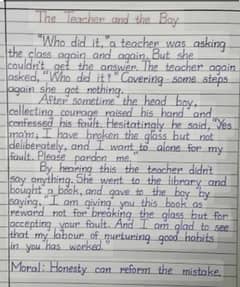 The Teacher and the Boy
"Who did it," a teacher was asking
the class again and again. But she
couldn't get the answer. The teacher again
asked, "Who did it?" Covering some steps
again she got nothing.
After sometime the head boy,
collecting courage raised his hand and
confessed his fault. Hesitatingly he said, "Yes
mam, I have broken the glass but not
deliberately, and I want to alone for my
fault. Please pardon me."
By hearing this the teacher didn't
say anything. She went to the library and
bought a book, and gave to the boy by
saying, "I am giving you this book as
reward not for breaking the glass but for
accepting your fault. And I am glad to see
that my labour of nurturing good habits
in you has worked."
Moral: Honesty can reform the mistake.